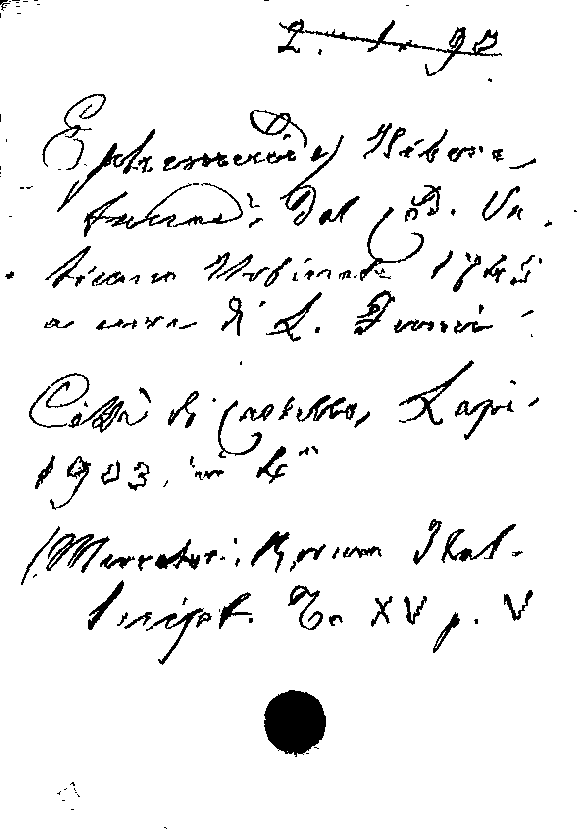 2. 1. 93
Ephemerides Urbeve
tanae dal Cod. Va
ticano Urbinate 1745
a cura di L. Fumi
Città di Castello, Lapi.
1903, in 4°
(Muratori: Rerum Ital.
Script. To XV p. V